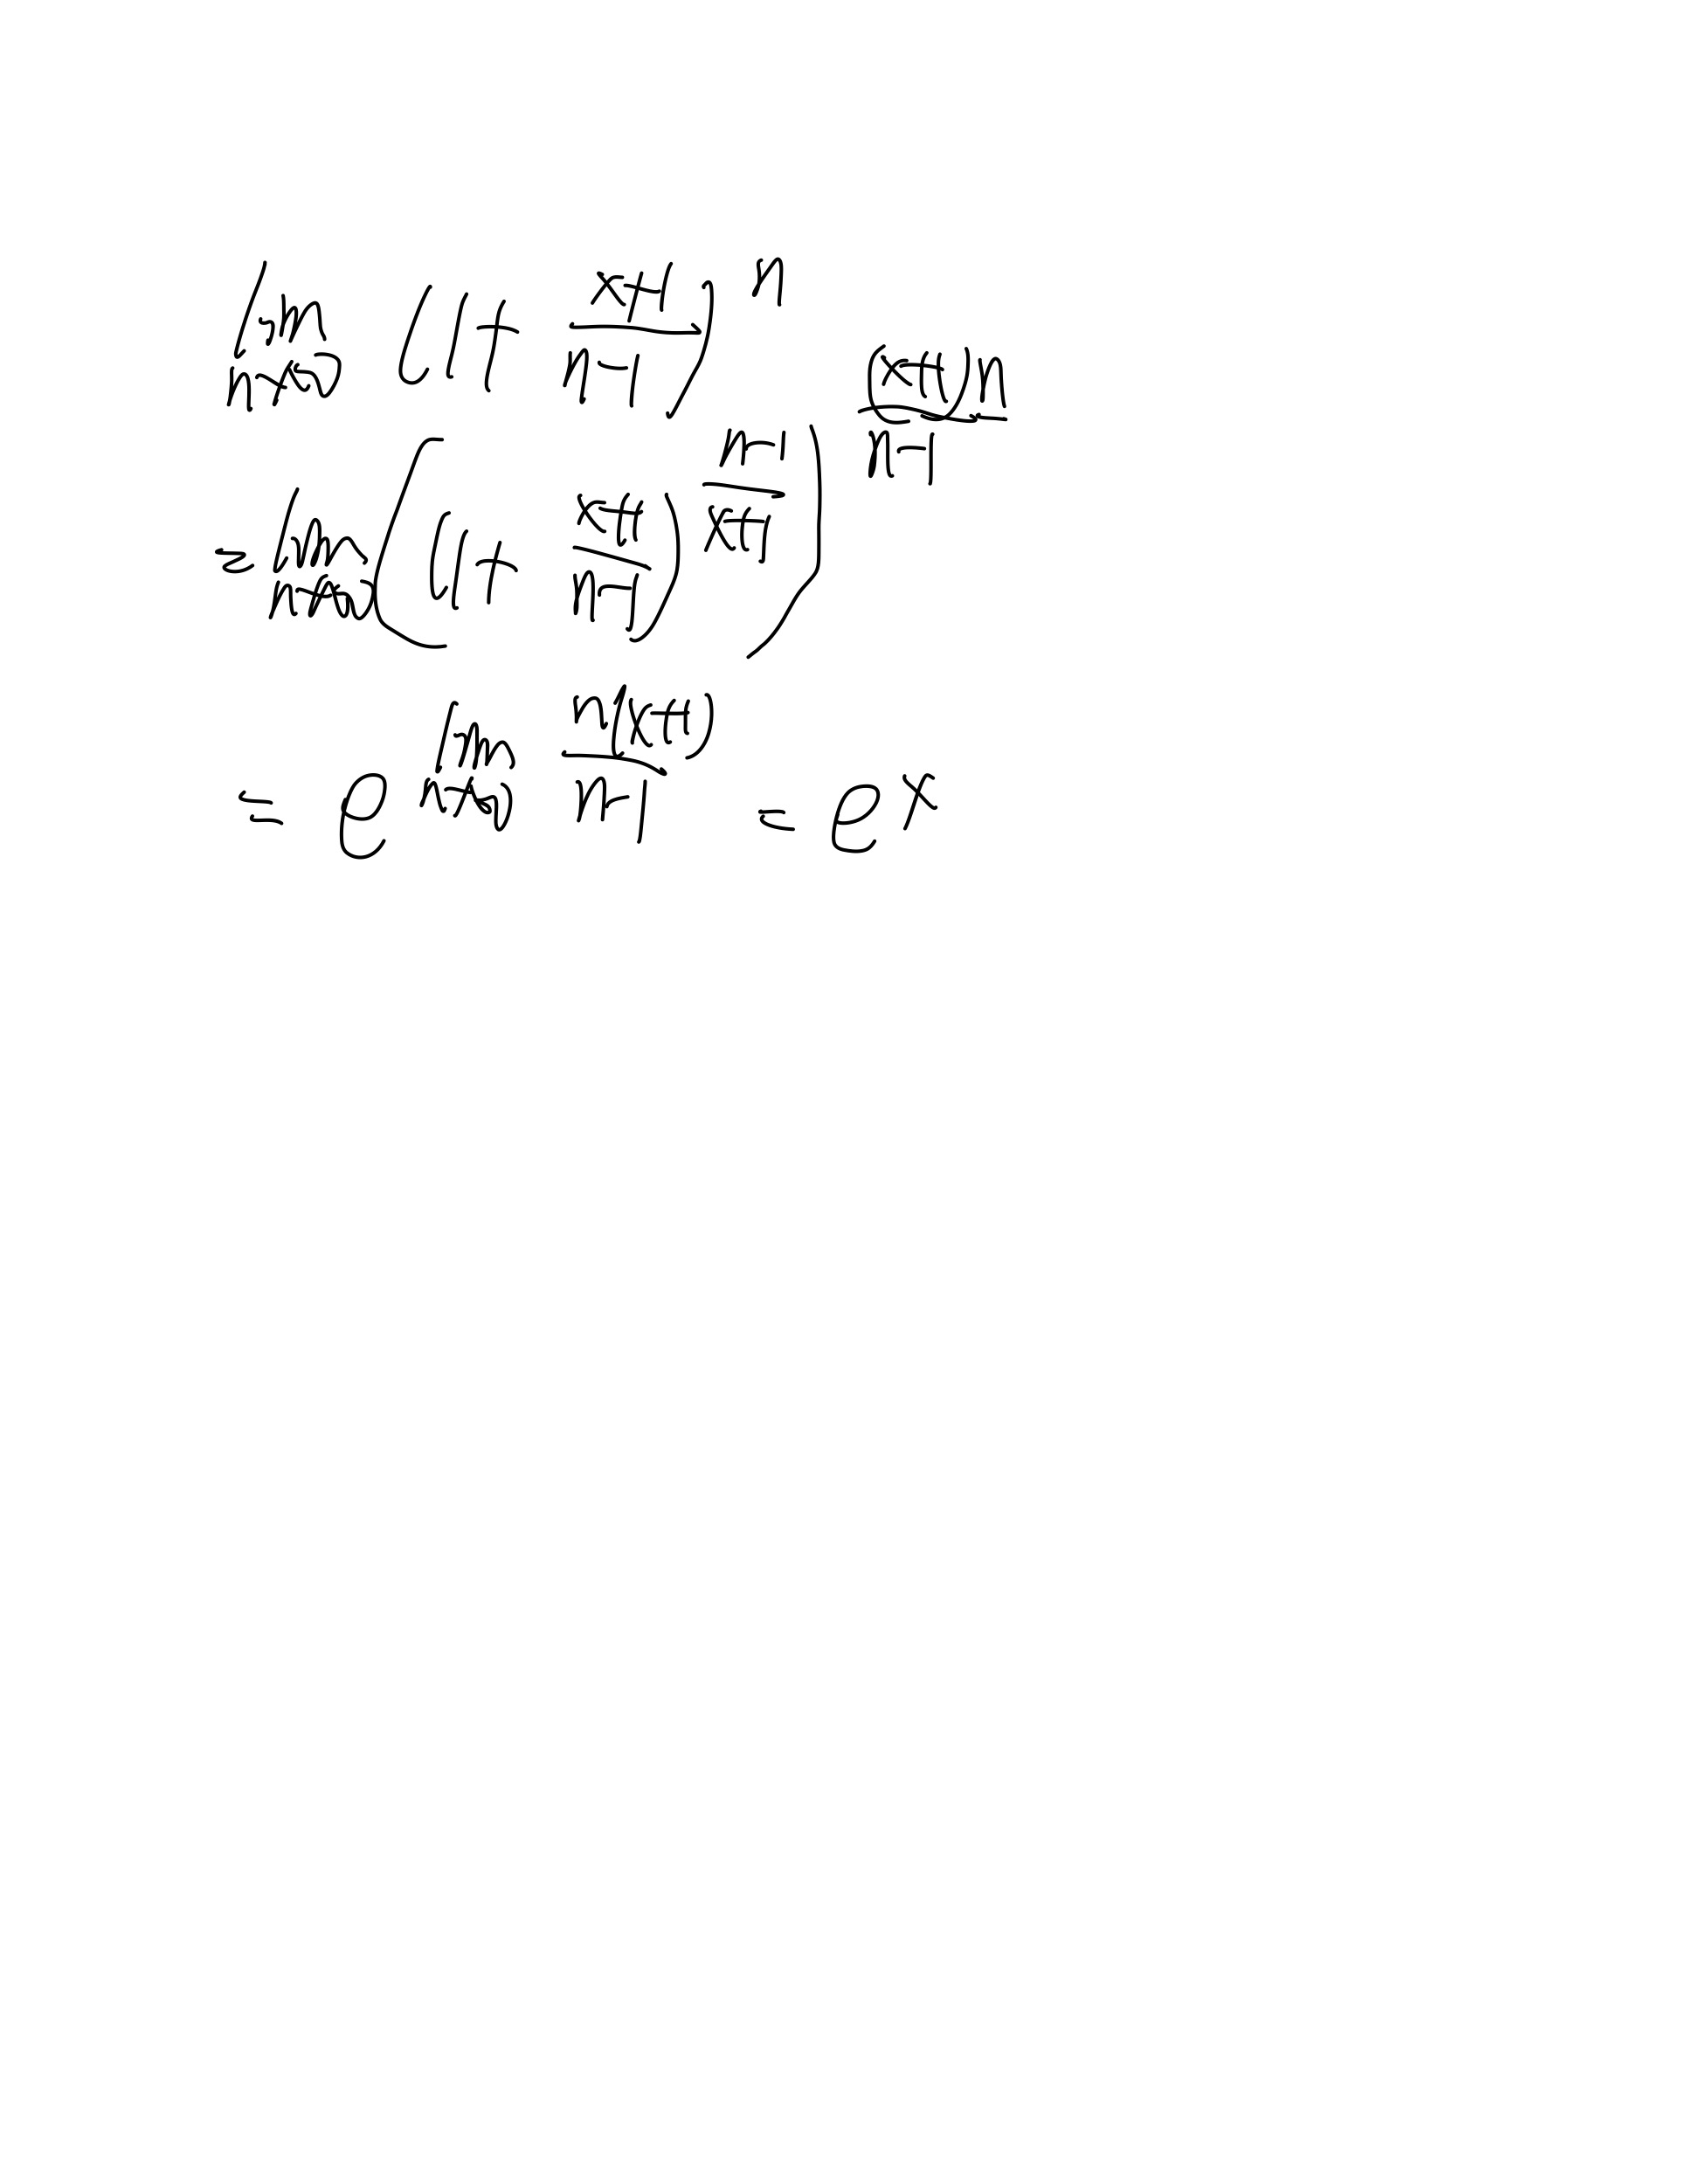 lim n→∞ (1+ (x+1)/(n-1))^n
= lim n→∞ ((1+ (x+1)/(n-1))^((n-1)/(x+1)))^((x+1)n/(n-1))
= e^(lim n→∞ n(x+1)/(n-1)) = e^x